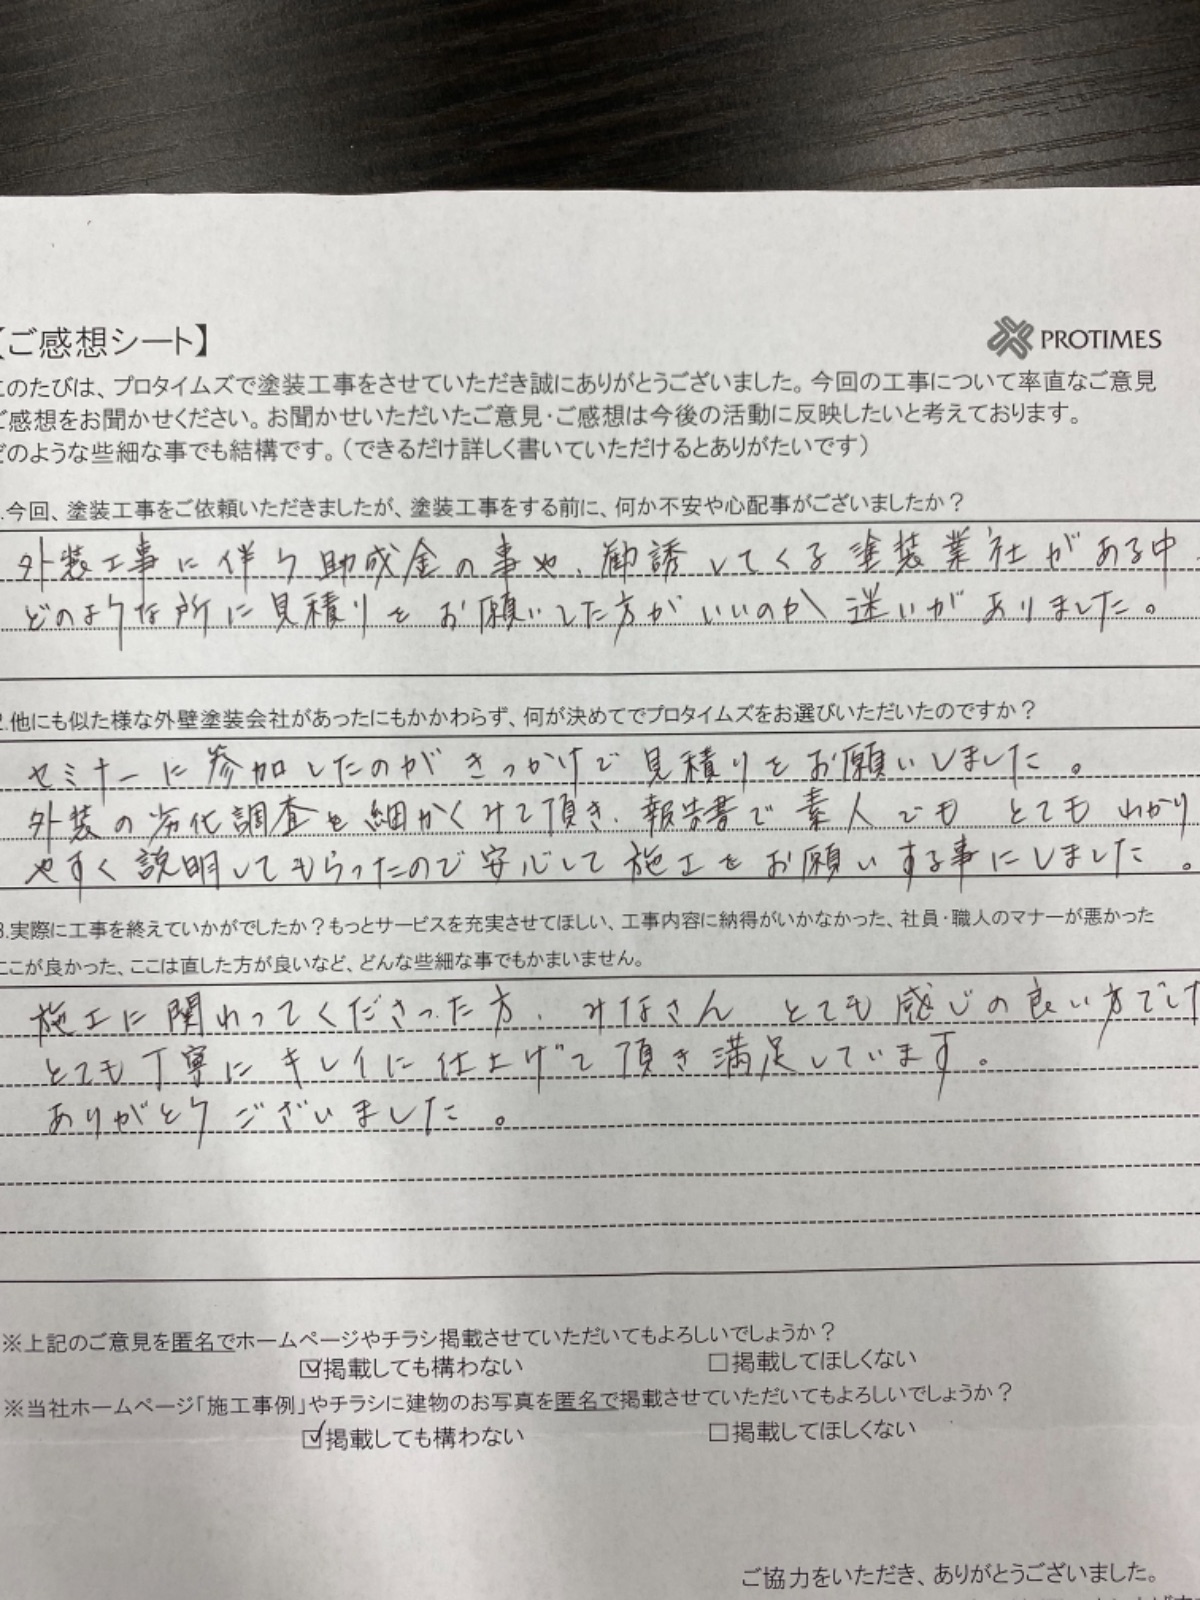 【ご感想シート】
PROTIMES
このたびは、プロタイムズで塗装工事をさせていただき誠にありがとうございました。今回の工事について率直なご意見
ご感想をお聞かせください。お聞かせいただいたご意見・ご感想は今後の活動に反映したいと考えております。
どのような些細な事でも結構です。（できるだけ詳しく書いていただけるとありがたいです）
.今回、塗装工事をご依頼いただきましたが、塗装工事をする前に、何か不安や心配事がございましたか？
外装工事に伴う助成金の事や、勧誘してくる塗装業社がある中
どのような所に見積りをお願いした方がいいのか迷いがありました。
2.他にも似た様な外壁塗装会社があったにもかかわらず、何が決めてでプロタイムズをお選びいただいたのですか？
セミナーに参加したのがきっかけで見積りをお願いしました。
外装の劣化調査を細かくみて頂き、報告書で素人でも とても わかり
やすく説明してもらったので安心して施工をお願いする事にしました。
3.実際に工事を終えていかがでしたか？もっとサービスを充実させてほしい、工事内容に納得がいかなかった、社員・職人のマナーが悪かった
ここが良かった、ここは直した方が良いなど、どんな些細な事でもかまいません。
施工に関わってくださった方、みなさん とても感じの良い方でした
とても丁寧にキレイに仕上げて頂き満足しています。
ありがとうございました。
※上記のご意見を匿名でホームページやチラシ掲載させていただいてもよろしいでしょうか？
☑掲載しても構わない □掲載してほしくない
※当社ホームページ「施工事例」やチラシに建物のお写真を匿名で掲載させていただいてもよろしいでしょうか？
☑掲載しても構わない □掲載してほしくない
ご協力をいただき、ありがとうございました。